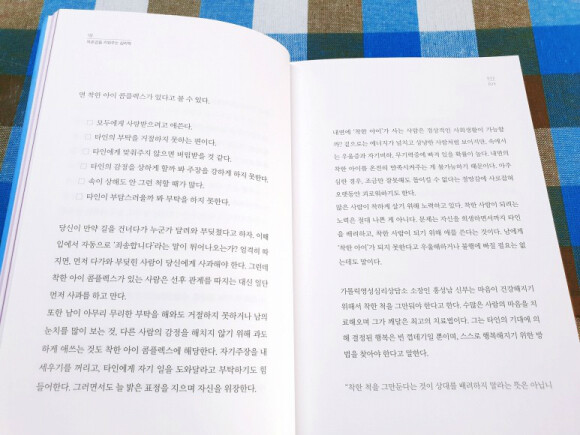 면 착한 아이 콤플렉스가 있다고 볼 수 있다.
□ 모두에게 사랑받으려고 애쓴다.
□ 타인의 부탁을 거절하지 못하는 편이다.
□ 타인에게 맞춰주지 않으면 버림받을 것 같다.
□ 타인의 감정을 상하게 할까 봐 주장을 강하게 하지 못한다.
□ 속이 상해도 안 그런 척할 때가 많다.
□ 타인이 부담스러울까 봐 부탁을 하지 못한다.
당신이 만약 길을 건너다가 누군가 달려와 부딪쳤다고 하자. 이때
입에서 자동으로 '죄송합니다'라는 말이 튀어나오는가? 엄격히 따
지면, 먼저 다가와 부딪힌 사람이 당신에게 사과해야 한다. 그런데
착한 아이 콤플렉스가 있는 사람은 선후 관계를 따지는 대신 일단
먼저 사과를 하고 만다.
또한 남이 아무리 무리한 부탁을 해와도 거절하지 못하거나 남의
눈치를 많이 보는 것, 다른 사람의 감정을 해치지 않기 위해 과도
하게 애쓰는 것도 착한 아이 콤플렉스에 해당한다. 자기주장을 내
세우기를 꺼리고, 타인에게 자기 일을 도와달라고 부탁하기도 힘
들어한다. 그러면서도 늘 밝은 표정을 지으며 자신을 위장한다.
내면에 '착한 아이'가 사는 사람은 정상적인 사회생활이 가능할
까? 겉으로는 에너지가 넘치고 상냥한 사람처럼 보이지만, 속에서
는 우울증과 자기비하, 무기력증에 빠져 있을 확률이 높다. 내면의
착한 아이를 온전히 만족시켜주는 게 불가능하기 때문이다. 아주
심한 경우, 조금만 잘못해도 돌이킬 수 없다는 절망감에 사로잡혀
오랫동안 괴로워하기도 한다.
많은 사람이 착하게 살기 위해 노력하고 있다. 착한 사람이 되려는
노력은 절대 나쁜 게 아니다. 문제는 자신을 희생하면서까지 타인
을 배려하고, 착한 사람이 되기 위해 애를 쓴다는 것이다. 남에게
'착한 아이'가 되지 못한다고 우울해하거나 불행에 빠질 필요는 없
는데도 말이다.
가톨릭영성심리상담소 소장인 홍성남 신부는 마음이 건강해지기
위해서 착한 척을 그만둬야 한다고 한다. 수많은 사람의 마음을 치
료해오며 그가 깨달은 최고의 치료법이다. 그는 타인의 기대에 의
해 결정된 행복은 빈 껍데기일 뿐이며, 스스로 행복해지기 위한 방
법을 찾아야 한다고 말한다.
"착한 척을 그만둔다는 것이 상대를 배려하지 말라는 뜻은 아닙니